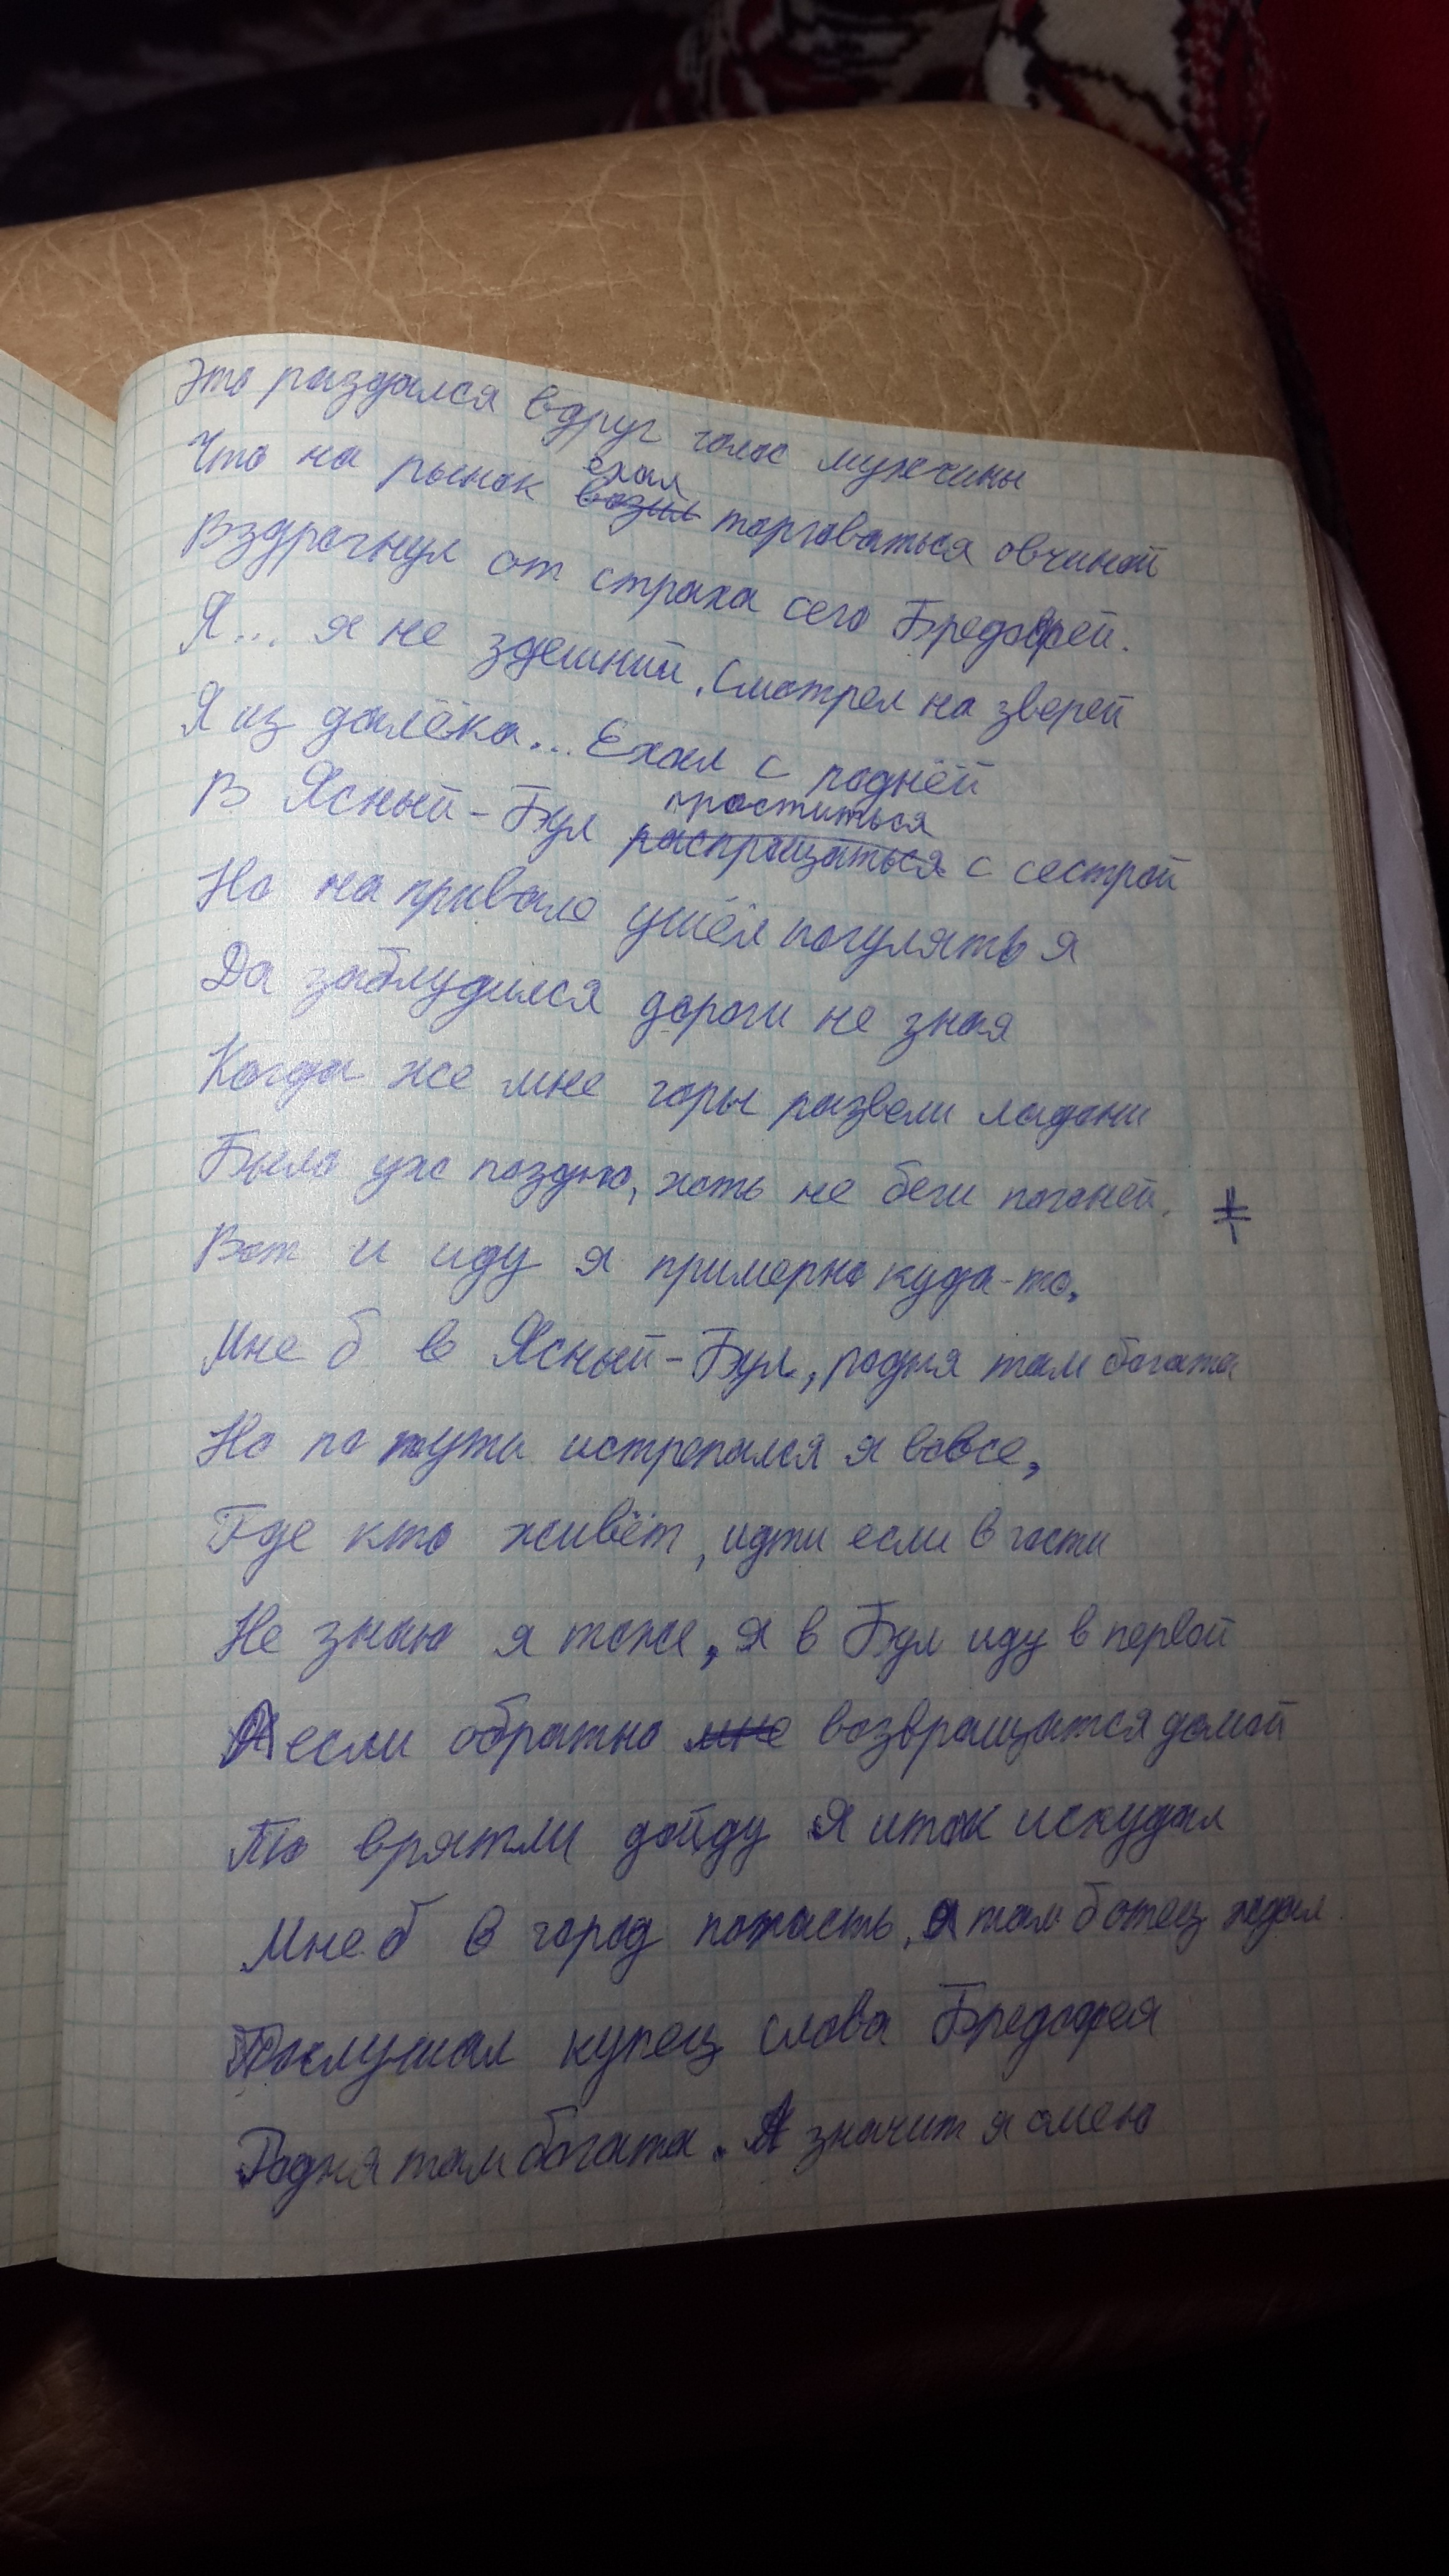 Это раздался вдруг голос мужчины
Что на рынок ехал возил торговаться овчиной
Вздрогнул от страха сего Бредофрей.
Я... я не здешний. Смотрел на зверей
Я из далёка... Ехал с роднёй
В Ясный-Бул проститься распрощаться с сестрой
Но на привале ушёл погулять я
Да заблудился дороги не зная
Когда же мне горы развели ладони
Было уже поздно, хоть не беги погоней.
Вот и иду я примерно куда-то,
Мне б в Ясный-Бул, родня там богата
Но по пути истрепался я вовсе,
Где кто живёт, идти если в гости
Не знаю я тоже, я в Бул иду в первой
А если обратно мне возвращатся домой
То врятли дойду Я итак исхудал
Мне б в город попасть, а там б отец ждал
Послушал купец слова Бредофрея
Родня там богата. А значит я смею